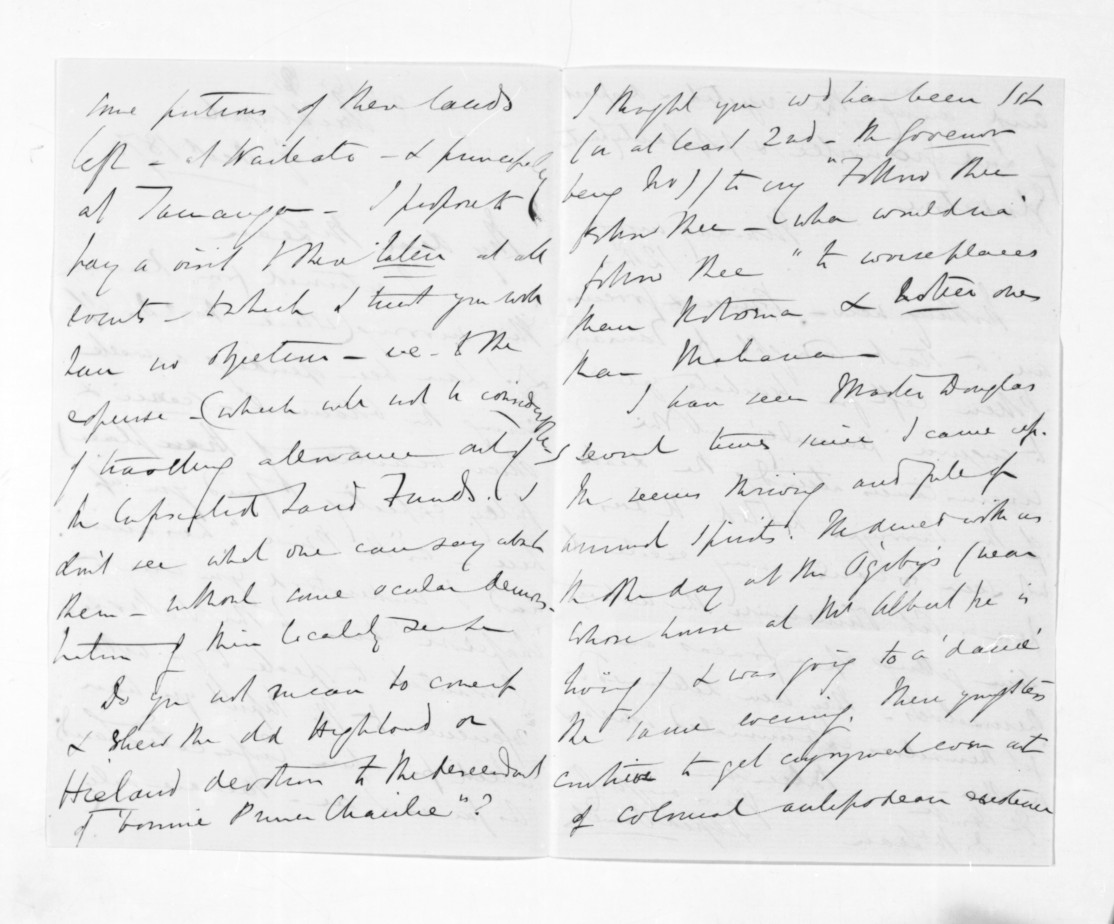 some portions of these lands
left - at Waikato - & principally
at Tauranga - I propose to
pay a visit to these later at all
events - to which I trust you will
have no objection - i.e. to the
expense - (which will not be considerable)
of travelling allowance out of
the Confiscated Land Funds. I
don't see what one can say about
them - without some ocular demons-
tration of their locality
Do you not mean to come up
& shew the old Highland or
Hieland devotion to the descendant
of "bonnie Prince Chairlie"?
I thought you wd have been 1st
(or at least 2nd - the Governor
being No 1) to cry "Follow thee
follow thee - wha wouldna'
follow thee" to worse places
than Rotorua & hotter ones
than Mahana -
I have seen Master Douglas
several times since I came up.
He seems thriving and full of
animal spirits. He dined with us
the other day at the Ogilby's (near
whose house at Mt Albert he is
living) & was going to a 'dance'
the same evening. These youngsters
contrive to get enjoyment even out
of colonial antipodean existence